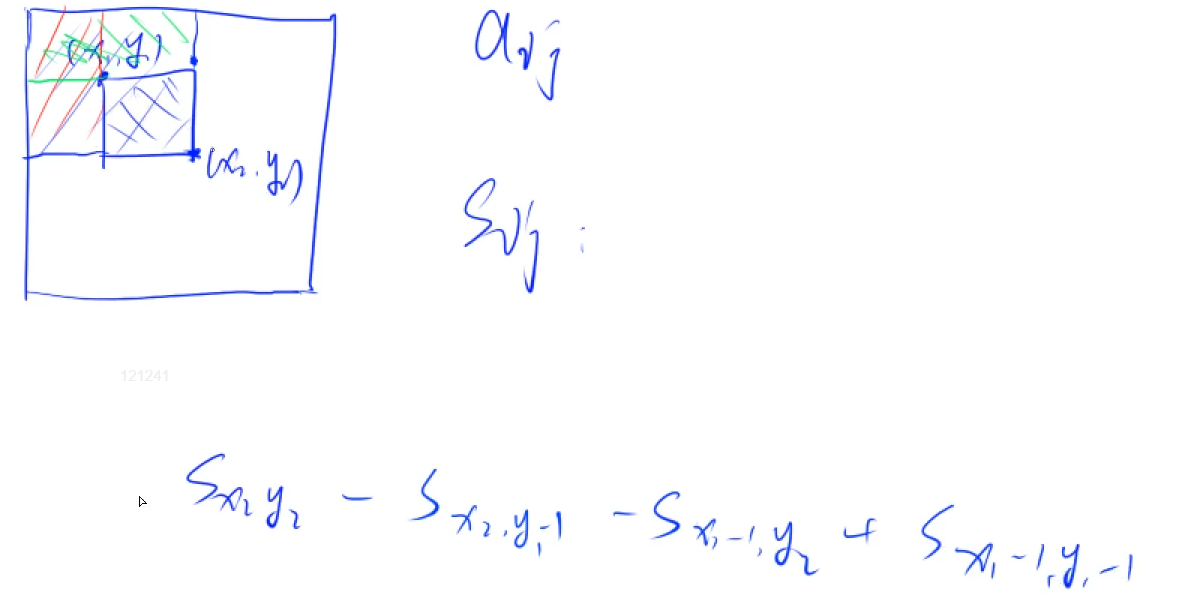 (x₁, y₁)
aᵢⱼ
(x₂, y₂)
Sᵢⱼ :
121241
Sx₂y₂ - Sx₂,y₁-1 - Sx₁-1,y₂ + Sx₁-1,y₁-1